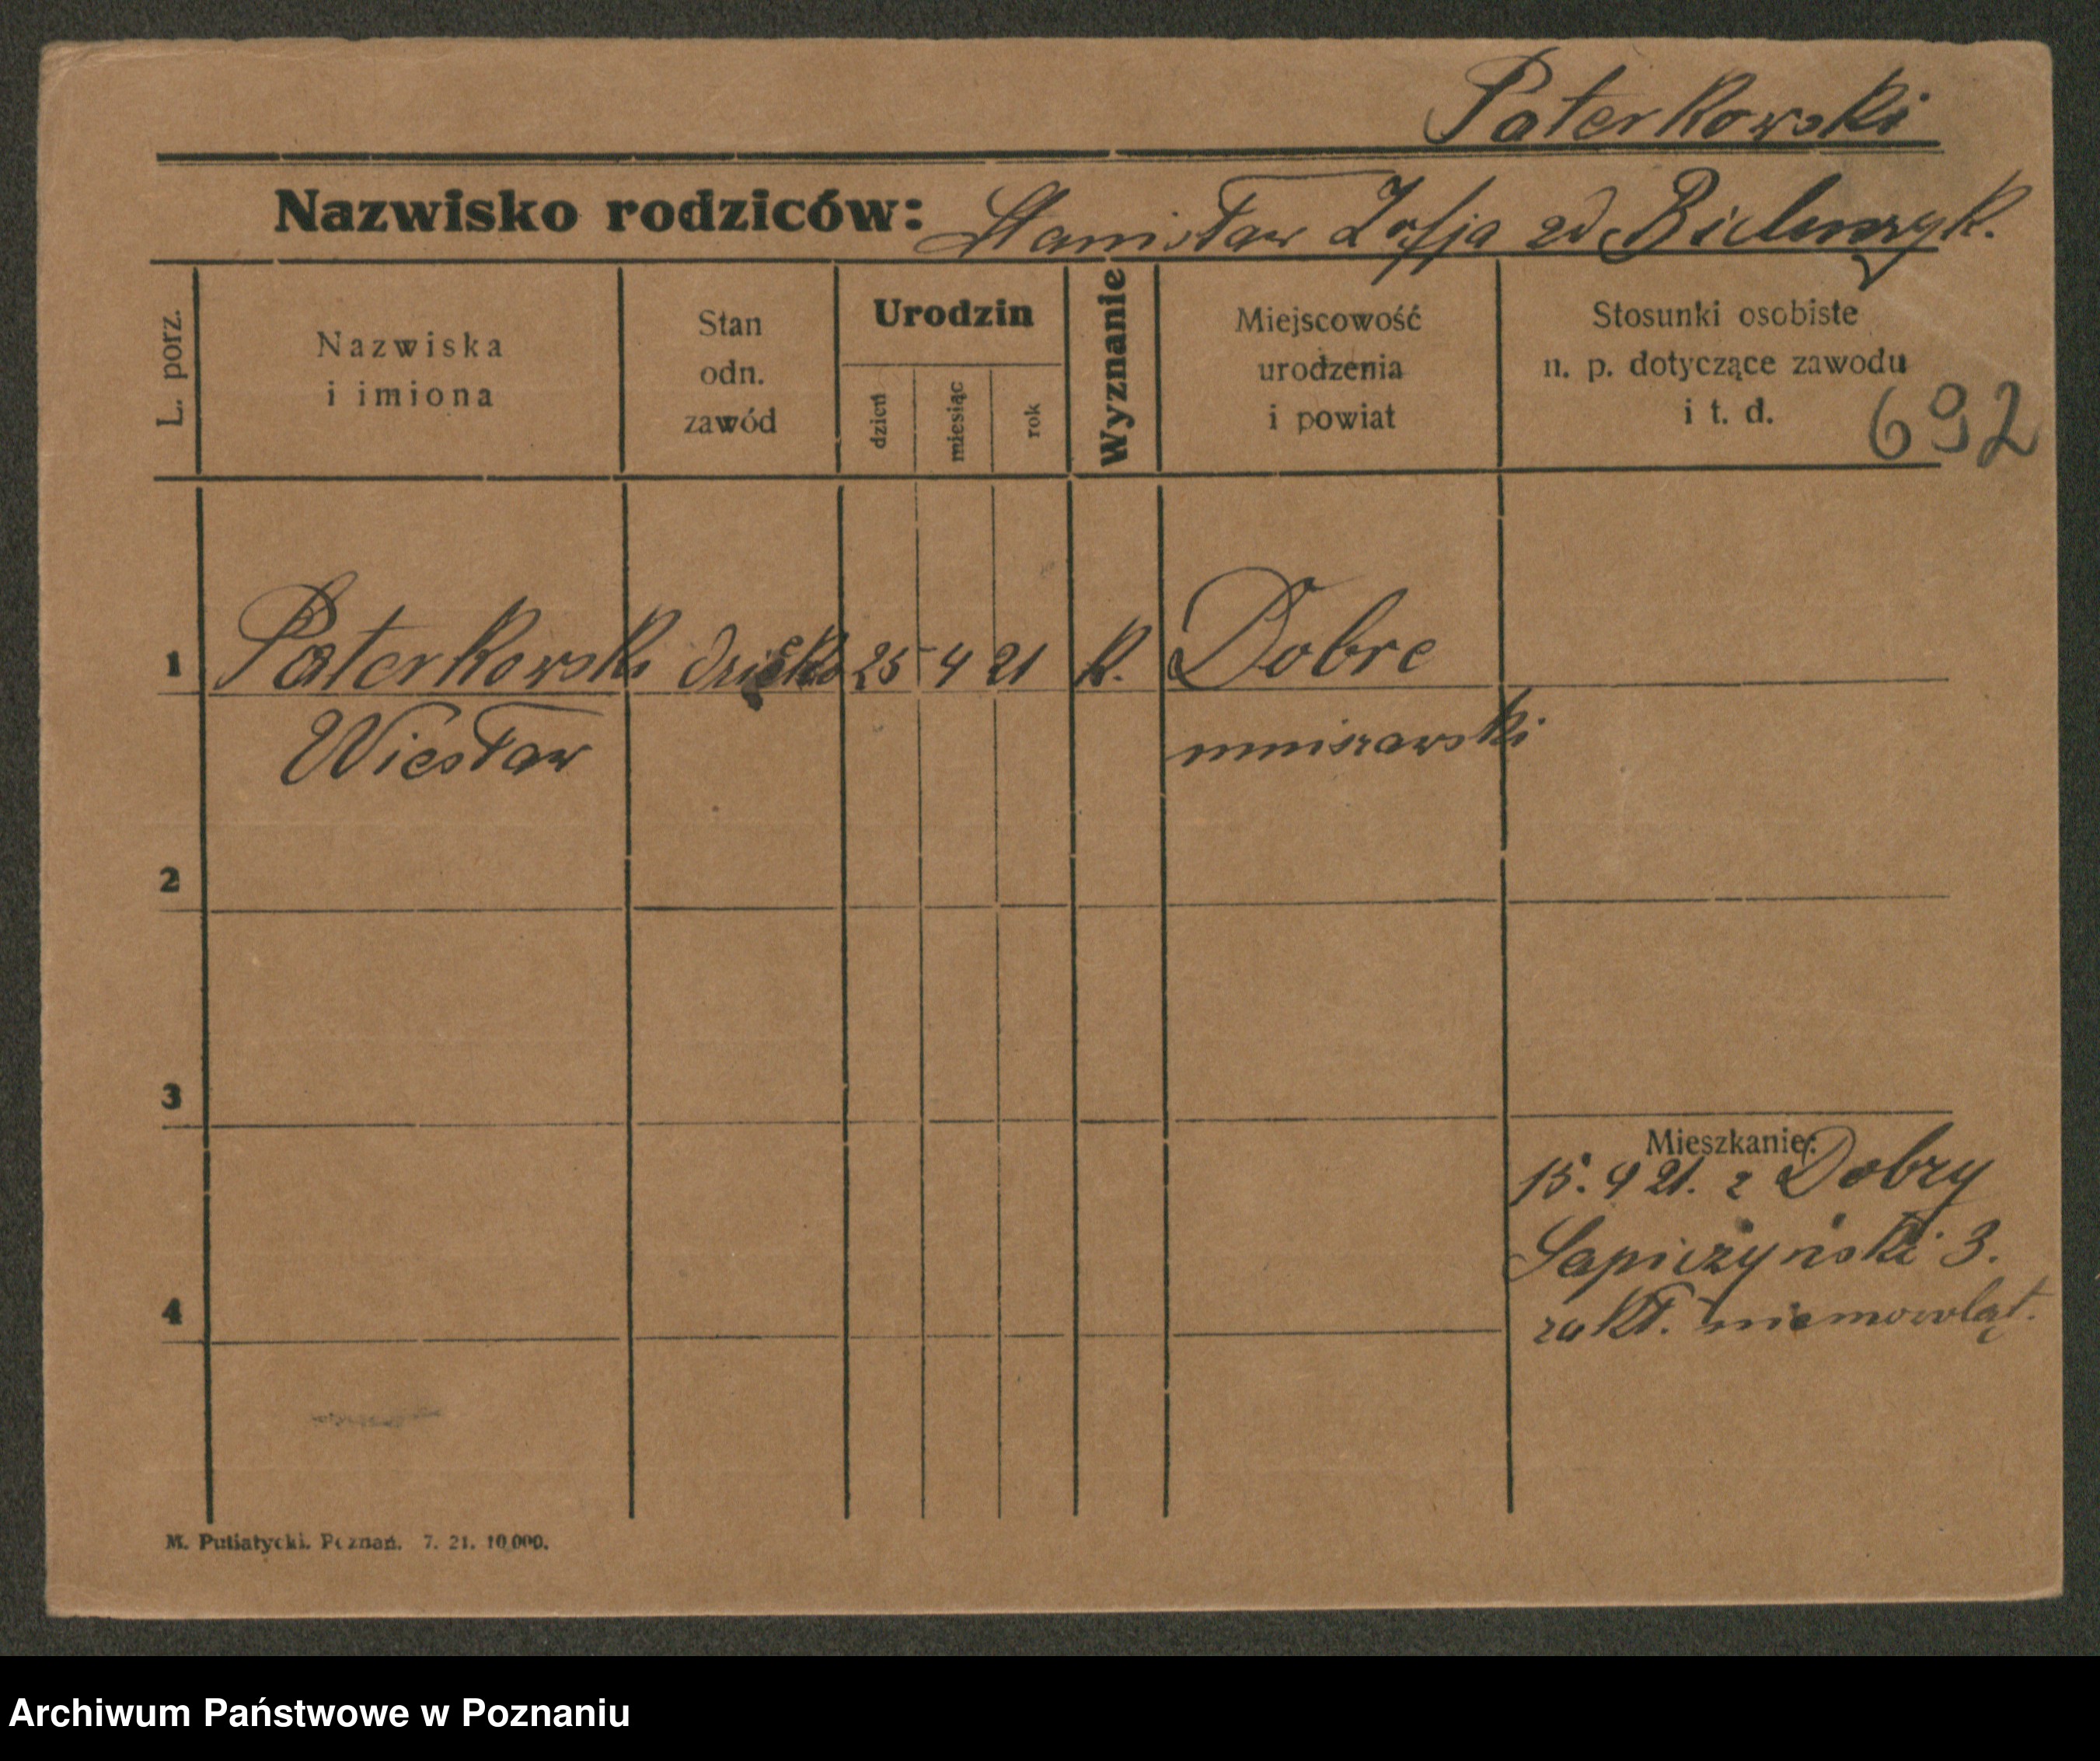 Paterkowski
Nazwisko rodziców: Stanisław Zofja zd
L. porz.
Nazwiska
i imiona
Stan
odn.
zawód
Urodzin
dzień
miesiąc
rok
Wyznanie
Miejscowość
urodzenia
i powiat
Stosunki osobiste
n. p. dotyczące zawodu
i t. d.
692
1 Paterkowski dziecko 25 4 21 k. Dobre
Wiesław
2
3
Mieszkanie:
15. 9 21. z Dobry
3.
4
zakł. niemowląt.
M. Putiatycki. Poznań. 7. 21. 10,000.
Archiwum Państwowe w Poznaniu